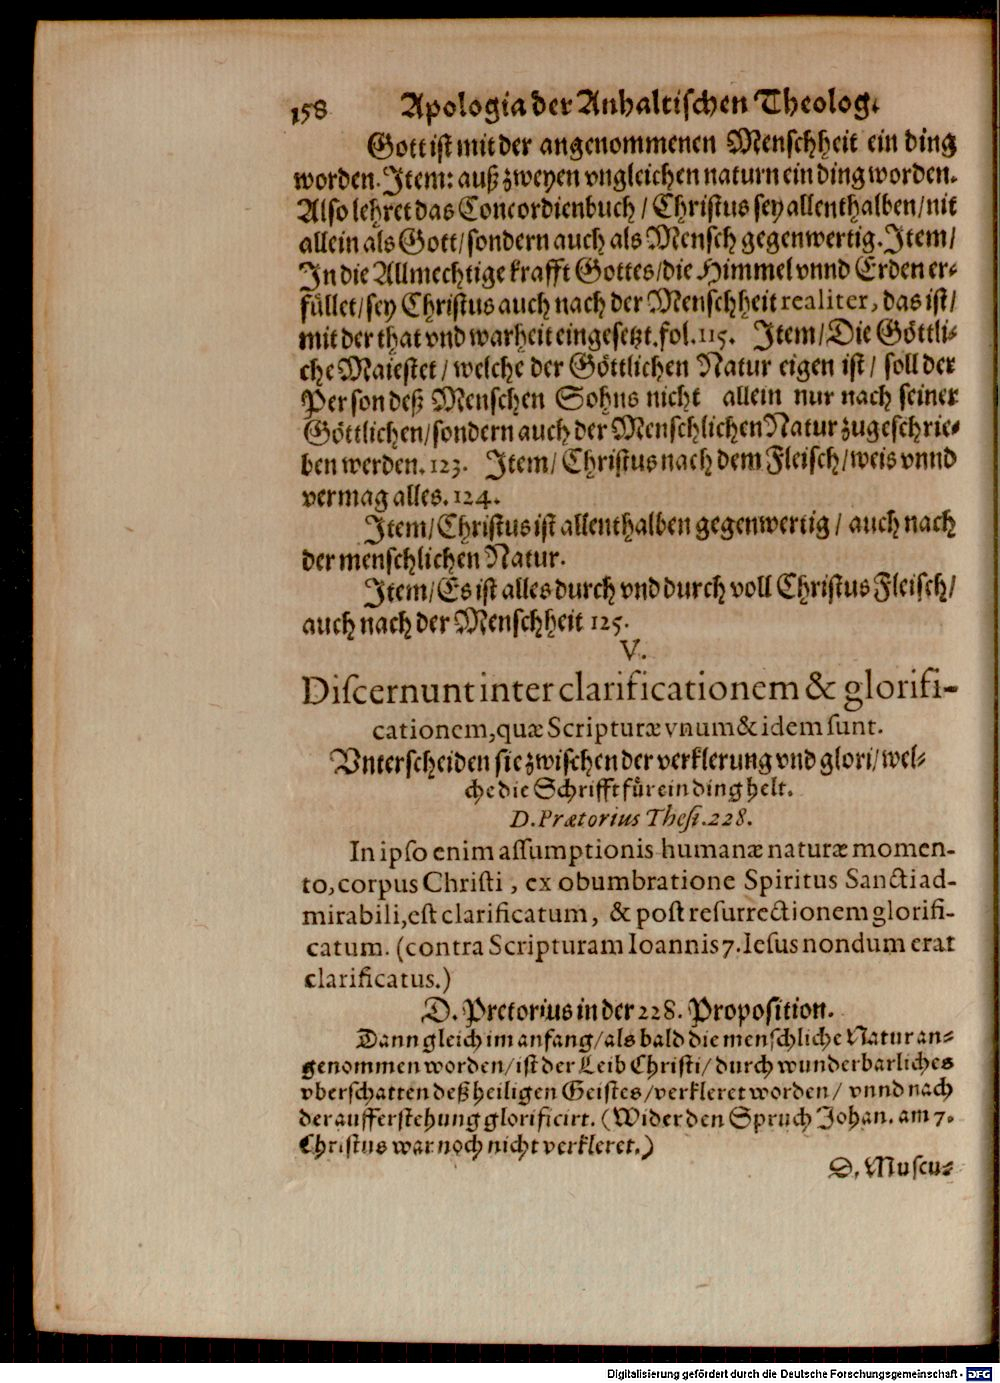 158 Apologia der Anhaltischen Theolog.
Gott ist mit der angenommenen Menschheit ein ding
worden. Item: auß zweyen vngleichen naturn ein ding worden.
Also lehret das Concordienbuch / Christus sey allenthalben / nit
allein als Gott / sondern auch als Mensch gegenwertig. Item /
In die Allmechtige krafft Gottes / die Himmel vnnd Erden er-
füllet / sey Christus auch nach der Menschheit realiter, das ist /
mit der that vnd warheit eingesetzt. fol. 115. Item / Die Göttli-
che Maiestet / welche der Göttlichen Natur eigen ist / soll der
Person deß Menschen Sohns nicht allein nur nach seiner
Göttlichen / sondern auch der Menschlichen Natur zugeschrie-
ben werden. 123. Item / Christus nach dem Fleisch / weis vnnd
vermag alles. 124.
Item / Christus ist allenthalben gegenwertig / auch nach
der menschlichen Natur.
Item / Es ist alles durch vnd durch voll Christus Fleisch /
auch nach der Menschheit 125.
V.
Discernunt inter clarificationem & glorifi-
cationem, quæ Scripturæ vnum & idem sunt.
Vnterscheiden sie zwischen der verklerung vnd glori / wel-
che die Schrifft für ein ding helt.
D. Prætorius Thesi. 228.
In ipso enim assumptionis humanæ naturæ momen-
to, corpus Christi, ex obumbratione Spiritus Sancti ad-
mirabili, est clarificatum, & post resurrectionem glorifi-
catum. (contra Scripturam Ioannis 7. Iesus nondum erat
clarificatus.)
D. Pretorius in der 228. Proposition.
Dann gleich im anfang / als bald die menschliche Natur an-
genommen worden / ist der Leib Christi / durch wunderbarliches
vberschatten deß heiligen Geistes / verkleret worden / vnnd nach
der aufferstehung glorificirt. (Wider den Spruch Johan. am 7.
Christus war noch nicht verkleret.)
D. Muscu-
Digitalisierung gefördert durch die Deutsche Forschungsgemeinschaft - DFG